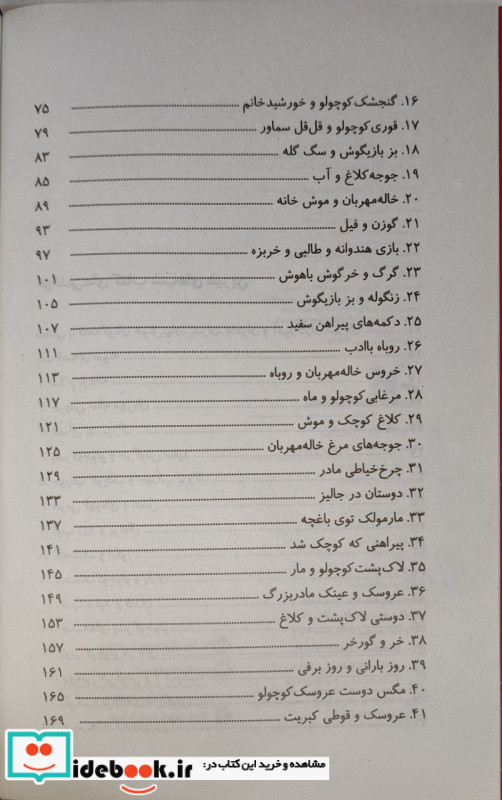 ۱۶. گنجشک کوچولو و خورشیدخانم ........ ۷۵
۱۷. قوری کوچولو و قل‌قل سماور ........ ۷۹
۱۸. بز بازیگوش و سگ گله ........ ۸۳
۱۹. جوجه‌کلاغ و آب ........ ۸۵
۲۰. خاله‌مهربان و موش خانه ........ ۸۹
۲۱. گوزن و فیل ........ ۹۳
۲۲. بازی هندوانه و طالبی و خربزه ........ ۹۷
۲۳. گرگ و خرگوش باهوش ........ ۱۰۱
۲۴. زنگوله و بز بازیگوش ........ ۱۰۵
۲۵. دکمه‌های پیراهن سفید ........ ۱۰۷
۲۶. روباه باادب ........ ۱۱۱
۲۷. خروس خاله‌مهربان و روباه ........ ۱۱۳
۲۸. مرغابی‌کوچولو و ماه ........ ۱۱۷
۲۹. کلاغ کوچک و موش ........ ۱۲۱
۳۰. جوجه‌های مرغ خاله‌مهربان ........ ۱۲۵
۳۱. چرخ‌خیاطی مادر ........ ۱۲۹
۳۲. دوستان در جالیز ........ ۱۳۳
۳۳. مارمولک توی باغچه ........ ۱۳۷
۳۴. پیراهنی که کوچک شد ........ ۱۴۱
۳۵. لاک‌پشت‌کوچولو و مار ........ ۱۴۵
۳۶. عروسک و عینک مادربزرگ ........ ۱۴۹
۳۷. دوستی لاک‌پشت و کلاغ ........ ۱۵۳
۳۸. خر و گورخر ........ ۱۵۷
۳۹. روز بارانی و روز برفی ........ ۱۶۱
۴۰. مگس دوست عروسک‌کوچولو ........ ۱۶۵
۴۱. عروسک و قوطی کبریت ........ ۱۶۹
مشاهده و خرید این کتاب در:
idebook.ir